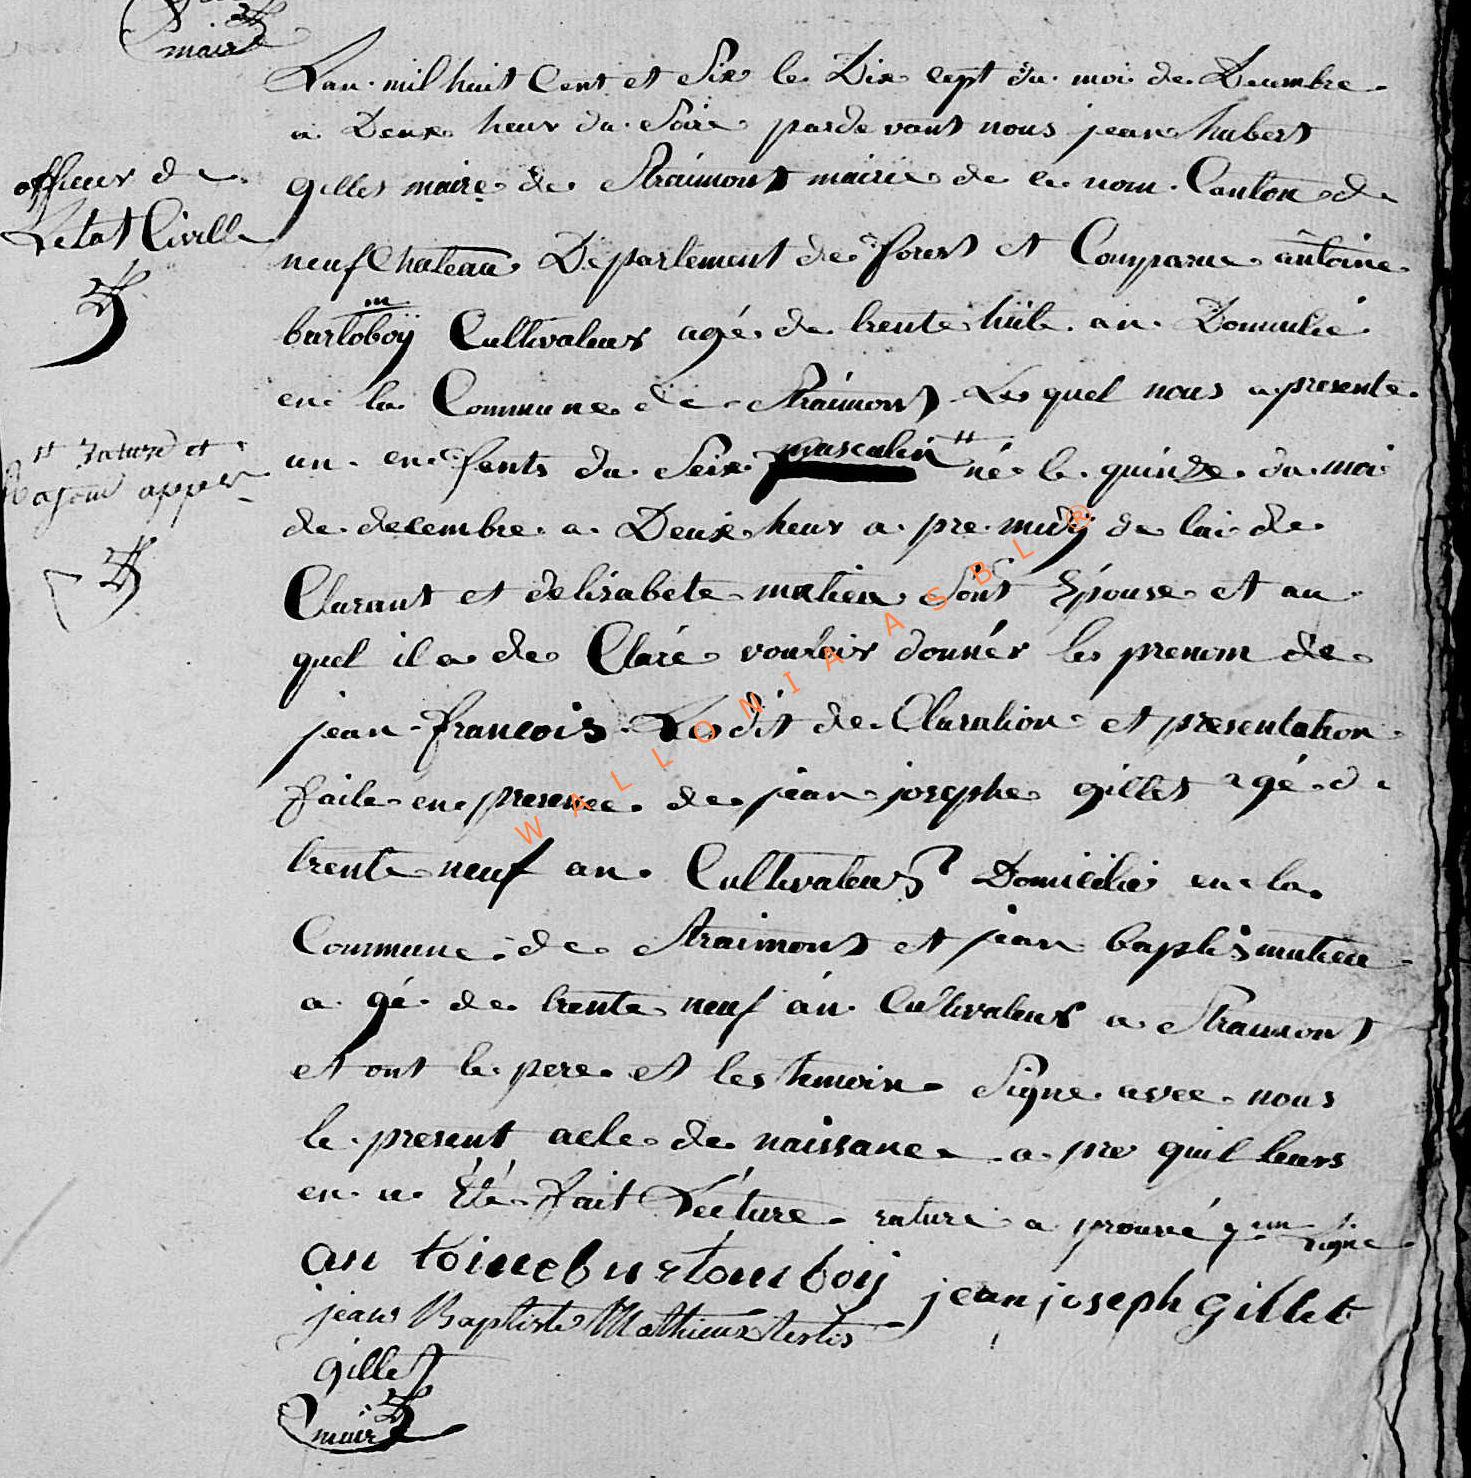 maire
Lan mil huit Cent et Six le Dix cept du moi de Decembre
a Deux heur du Soire pardevant nous jean hubert
officier de
Letat Civille
gilles maire de Straimont mairie de ce nom Canton de
neufChateau Departement de forest et Comparue antoine
m
burtoboÿ Cultivateur agé de trente hüit an Domicilié
en la Commune de Straimont Les quel nous a presente
un en fents du Sexe masculin né le quinze du moi
rature et
ajout apper
de decembre a Deux heur a pre midÿ de lai de
Clarant et delisabete matieu sont Epouse et au
quel il a de Claré vouloir donnér les prenom de
jean francois Les dit de Claration et presentation
faite en presence de jean josephe gillet agé de
trente neuf an Cultivateur Domicilié en la
Commune de Straimont et jean baptis matieu
a gé de trente neuf an Cultivateur a Straimont
et ont le pere et les temoin Signe avec nous
le present acte de naissance a pre quil leurs
en a Eté fait Lecture rature a prouvé
an toine burtomboij jean joseph gillet
jean Baptiste Mathieux testis
gillet
maire
WALLONIA ASBL ®